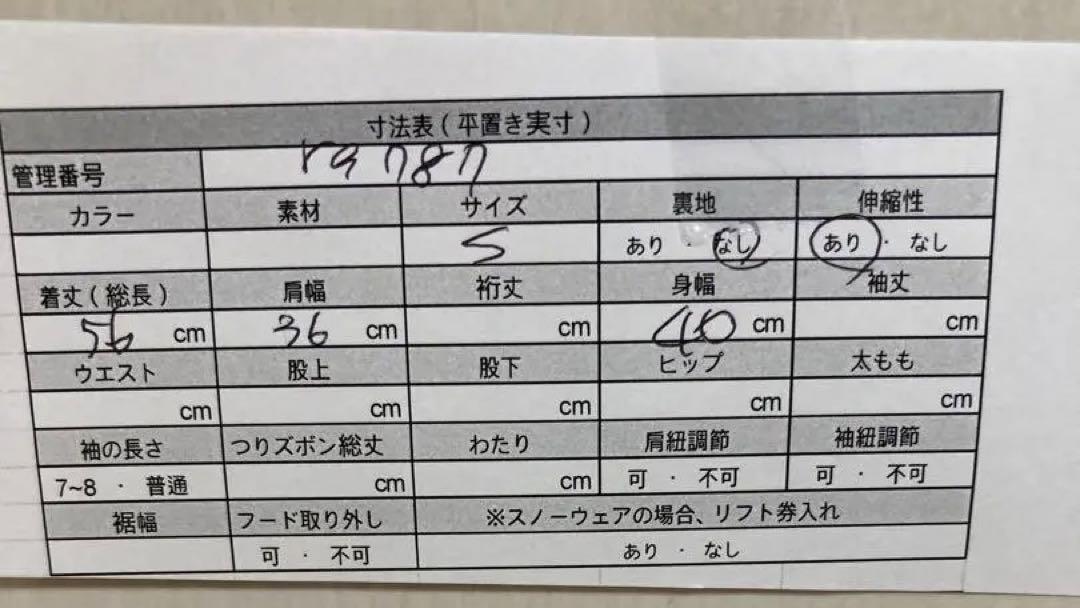 寸法表(平置き実寸)
管理番号 ra 787
カラー 素材 サイズ 裏地 伸縮性
S あり ・ なし あり ・ なし
着丈(総長) 肩幅 裄丈 身幅 袖丈
56 cm 36 cm cm 40 cm cm
ウエスト 股上 股下 ヒップ 太もも
cm cm cm cm cm
袖の長さ つりズボン総丈 わたり 肩紐調節 袖紐調節
7~8 ・ 普通 cm cm 可 ・ 不可 可 ・ 不可
裾幅 フード取り外し ※スノーウェアの場合、リフト券入れ
可 ・ 不可 あり ・ なし